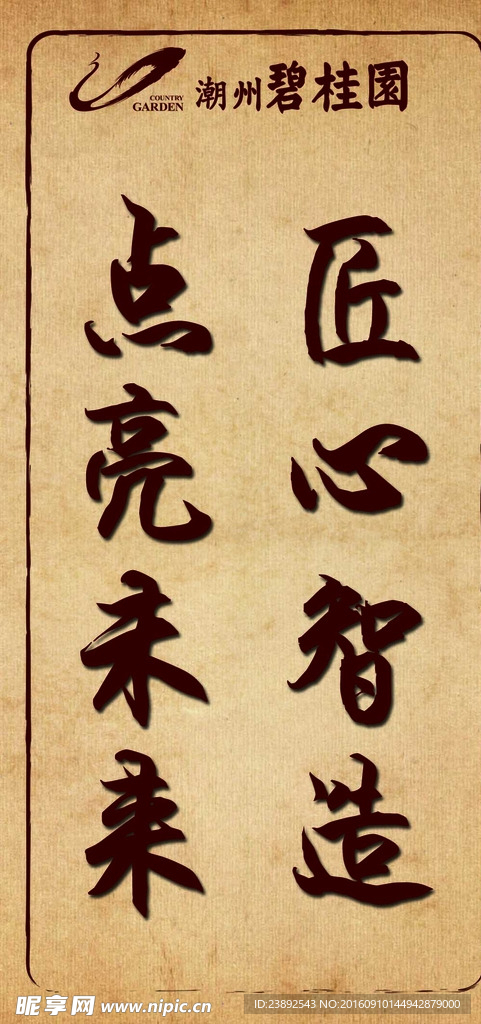 COUNTRY
GARDEN
潮州碧桂園
匠心智造
点亮未来
昵享网 www.nipic.cn
ID:23892543 NO:20160910144942879000